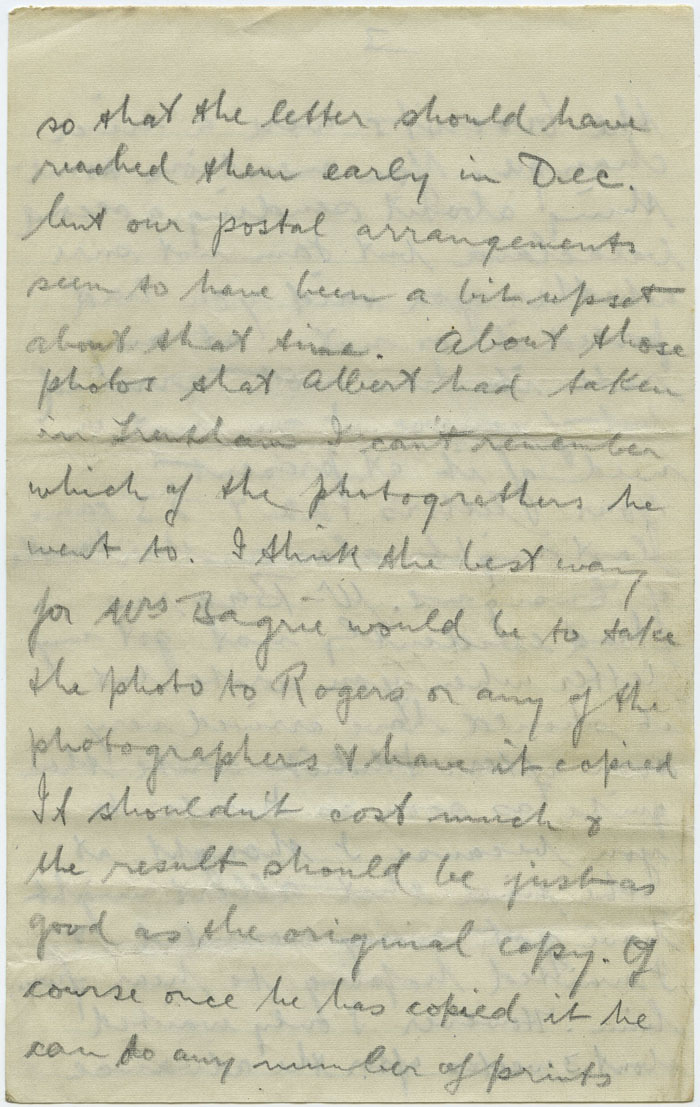 so that the letter should have
reached them early in Dec.
but our postal arrangements
seem to have been a bit upset
about that time. About those
photos that Albert had taken
in I can't remember
which of the photograthers he
went to. I think the best way
for Mrs Bagrie would be to take
the photo to Rogers or any of the
photographers & have it copied
It shouldn't cost much &
the result should be just as
good as the original copy. Of
course once he has copied it he
can do any number of prints